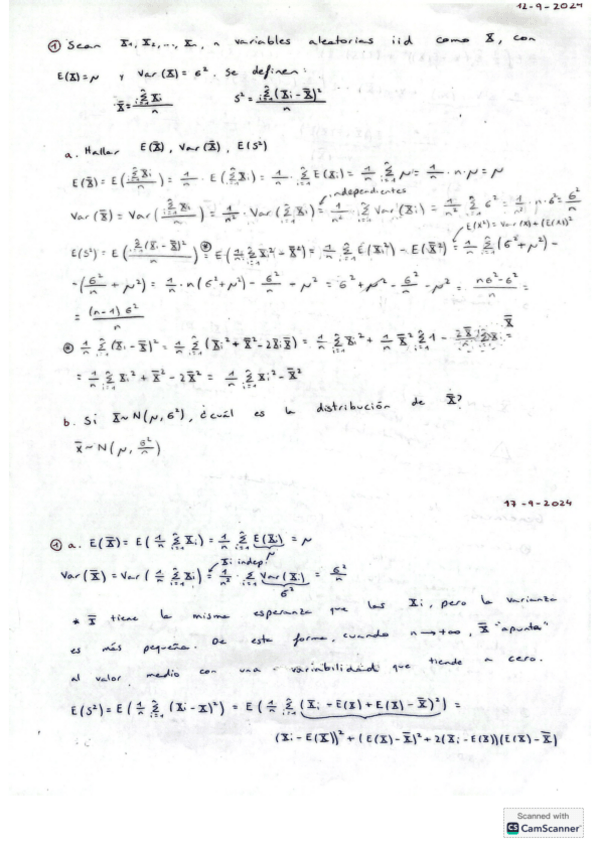 12-9-2024
① Sean X₁, X₂, ..., Xₙ, n variables aleatorias iid como X, con
E(X)=μ y Var(X)=σ². Se definen:
X̄ = Σᵢ₌₁ⁿ Xᵢ / n    S² = Σᵢ₌₁ⁿ (Xᵢ - X̄)² / n
a. Hallar E(X̄), Var(X̄), E(S²)
E(X̄) = E(Σᵢ₌₁ⁿ Xᵢ / n) = 1/n · E(Σᵢ₌₁ⁿ Xᵢ) = 1/n · Σᵢ₌₁ⁿ E(Xᵢ) = 1/n Σᵢ₌₁ⁿ μ = 1/n · n · μ = μ
independientes
Var(X̄) = Var(Σᵢ₌₁ⁿ Xᵢ / n) = 1/n² · Var(Σᵢ₌₁ⁿ Xᵢ) = 1/n² Σᵢ₌₁ⁿ Var(Xᵢ) = 1/n² Σᵢ₌₁ⁿ σ² = 1/n² · n · σ² = σ²/n
E(X²) = Var(X) + (E(X))²
E(S²) = E(Σᵢ₌₁ⁿ (Xᵢ - X̄)² / n) =⊛ E(1/n Σᵢ₌₁ⁿ Xᵢ² - X̄²) = 1/n Σᵢ₌₁ⁿ E(Xᵢ²) - E(X̄²) = 1/n Σᵢ₌₁ⁿ (σ² + μ²) -
-(σ²/n + μ²) = 1/n · n(σ² + μ²) - σ²/n - μ² = σ² + μ² - σ²/n - μ² = nσ² - σ² / n =
= (n-1)σ² / n
⊛ 1/n Σᵢ₌₁ⁿ (Xᵢ - X̄)² = 1/n Σᵢ₌₁ⁿ (Xᵢ² + X̄² - 2XᵢX̄) = 1/n Σᵢ₌₁ⁿ Xᵢ² + 1/n X̄² Σᵢ₌₁ⁿ 1 - 2X̄/n Σᵢ₌₁ⁿ Xᵢ = X̄
= 1/n Σᵢ₌₁ⁿ Xᵢ² + X̄² - 2X̄² = 1/n Σᵢ₌₁ⁿ Xᵢ² - X̄²
b. Si X ~ N(μ, σ²), ¿cuál es la distribución de X̄?
X̄ ~ N(μ, σ²/n)
17-9-2024
① a. E(X̄) = E(1/n Σᵢ₌₁ⁿ Xᵢ) = 1/n Σᵢ₌₁ⁿ E(Xᵢ) = μ
Xᵢ indep. μ
Var(X̄) = Var(1/n Σᵢ₌₁ⁿ Xᵢ) = 1/n² · Σᵢ₌₁ⁿ Var(Xᵢ) = σ²/n
σ²
* X̄ tiene la misma esperanza que las Xᵢ, pero la varianza
es más pequeña. De esta forma, cuando n→+∞, X̄ "apunta"
al valor medio con una variabilidad que tiende a cero.
E(S²) = E(1/n Σᵢ₌₁ⁿ (Xᵢ - X̄)²) = E(1/n Σᵢ₌₁ⁿ (Xᵢ - E(X) + E(X) - X̄)²) =
(Xᵢ - E(X))² + (E(X) - X̄)² + 2(Xᵢ - E(X))(E(X) - X̄)
Scanned with
CS CamScanner